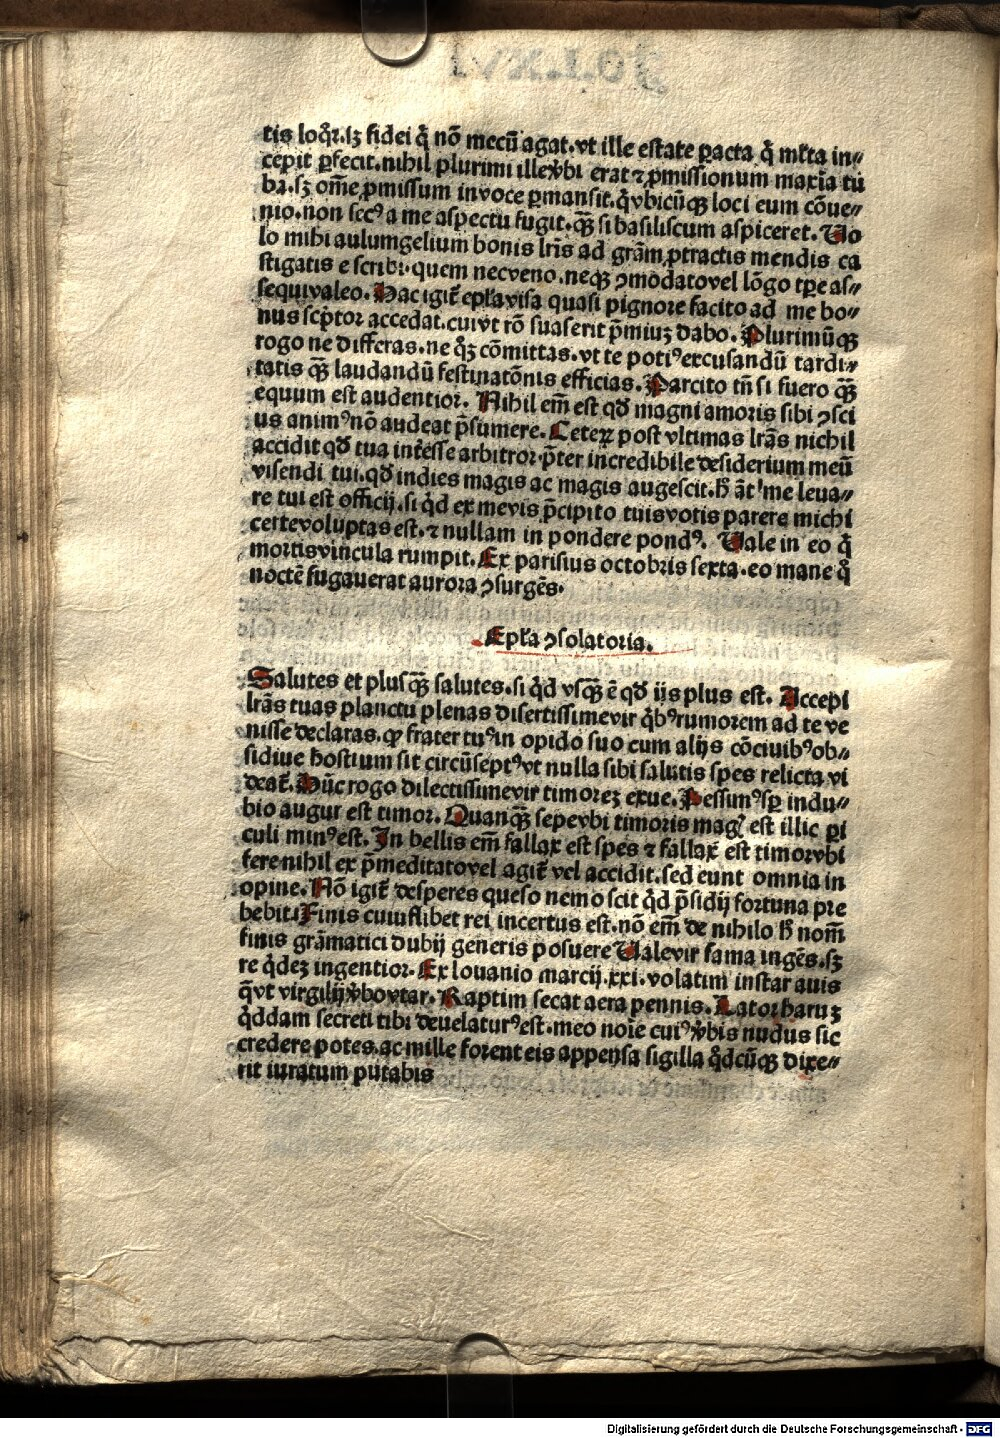 tis loq̄r.lꝫ fidei q̄ nō mecū agat.vt ille estate ꝑacta q̄ ml̄ta in⸗
cepit ꝑfecit.nihil plurimi ille v̄bi erat ⁊ ꝓmissionum maxīa tū
ba.sꝫ om̄e ꝓmissum in voce ꝑmansit.q̄ vbicūqꝫ loci eum cōue⸗
nio.non secꝰ a me aspectu fugit.qꝙ̄ si basiliscum aspiceret. Uo
lo mihi aulumgelium bonis lr̄is ad grām ꝓtractis mendis ca
stigatis e scribi.quem nec veno.neqꝫ ↄmodato vel lōgo tꝑe as⸗
sequi valeo. Hac igit̄ epl̄a visa quasi pignore facito ad me bo⸗
nus sc̄ptor accedat.cui vt rō suaserit p̄miuꝫ dabo. Plurimūqꝫ
rogo ne differas.ne q̄ꝫ cōmittas.vt te potiꝰ excusandū tardi⸗
tatis qꝙ̄ laudandū festinatōnis efficias. Parcito tn̄ si fuero qꝙ̄
equum est audentior. Nihil em̄ est qđ magni amoris sibi ↄsci
us animꝰ nō audeat p̄sumere. Ceteꝝ post vltimas lr̄as nichil
accidit qđ tua int̄esse arbitror.p̄ter incredibile desiderium meū
visendi tui.qđ indies magis ac magis augescit.h̄ āt me leua⸗
re tui est officij.si q̄d ex me vis p̄cipito tuis votis parere michi
certe voluptas est.⁊ nullam in pondere pondꝰ. Uale in eo q̄
mortis vincula rumpit. Ex parisius octobris sexta.eo mane q̄
noctē fugauerat aurora ↄsurgēs.
Epl̄a ↄsolatoria.
Salutes et plusqꝙ̄ salutes.si q̄d vsqꝙ̄ ē qđ ijs plus est. Accepi
lr̄as tuas planctu plenas disertissime vir q̄bꝰ rumorem ad te ve
nisse declaras.ꝙ frater tuꝰ in opido suo cum alijs cōciuibꝰ ob⸗
sidiue hostium sit circūseptꝰ vt nulla sibi salutis spes relicta vi
deat̄. Hūc rogo dilectissime vir timoreꝫ exue. Pessimꝰ sꝑ in du⸗
bio augur est timor. Quanqꝙ̄ sepe vbi timoris magꝭ est illic ꝑi
culi minꝰ est. In bellis em̄ fallax est spes ⁊ fallax est timor vbi
fere nihil ex p̄meditato vel agit̄ vel accidit.sed eunt omnia in
opine. Nō igit̄ desperes queso nemo scit q̄d p̄sidij fortuna pre
bebit. Finis cuiuslibet rei incertus est.nō em̄ de nihilo h̄ nom̄
finis grāmatici dubij generis posuere Uale vir fama ingēs.sꝫ
re q̄deꝫ ingentior. Ex louanio marcij.xxi.volatim instar auis
q̄ vt virgilij v̄bo vtar. Raptim secat aera pennis. Lator haruꝫ
q̄ddam secreti tibi deuelaturꝰ est.meo noīe cuiꝰ v̄bis nudus sic
credere potes.ac mille forent eis appensa sigilla q̄dcūqꝫ dixe⸗
rit iuratum putabis
Digitalisierung gefördert durch die Deutsche Forschungsgemeinschaft - DFG